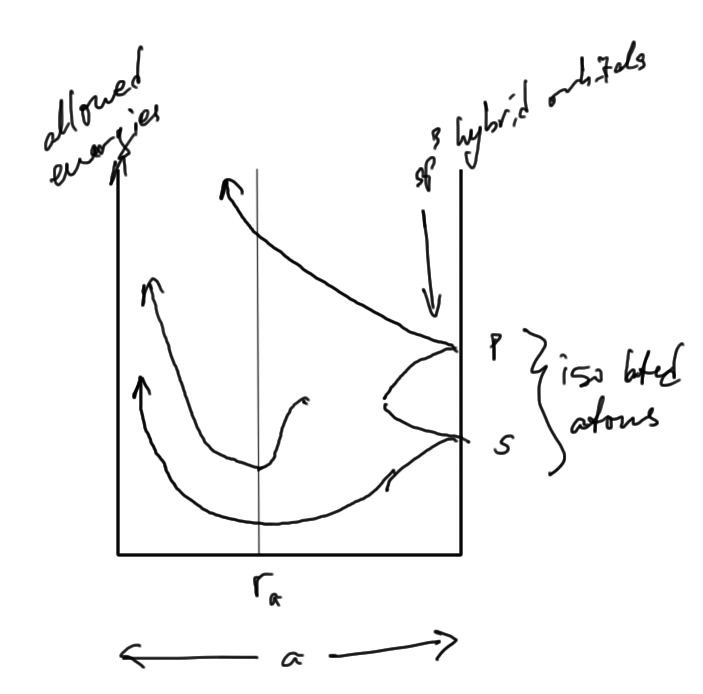 allowed
energies
sp³ hybrid orbitals
P
isolated
atoms
S
rₐ
a